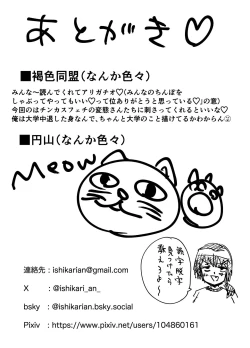 あとがき♡
■褐色同盟(なんか色々)
みんな〜読んでくれてアリガチオ♡(みんなのちんぽを
しゃぶってやってもいい♡って位ありがとうと思っている♡」の意)
今回のはチンカスフェチの変態さんたちに刺さってくれるといいな♡
俺は大学中退した身なんで、ちゃんと大学のこと描けてるかわからん㋡
■円山(なんか色々)
Meow
誤字脱字
見つけたら
教えろよ〜
連絡先 : ishikarian@gmail.com
X : @ishikari_an_
bsky : @ishikarian.bsky.social
Pixiv : https://www.pixiv.net/users/104860161